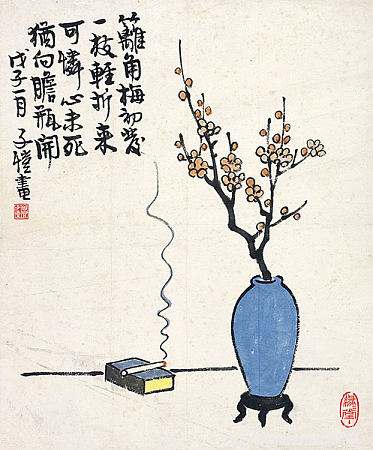 籬角梅初發
一枝輕折來
可憐心未死
猶向膽瓶開
戊子一月 子愷畫